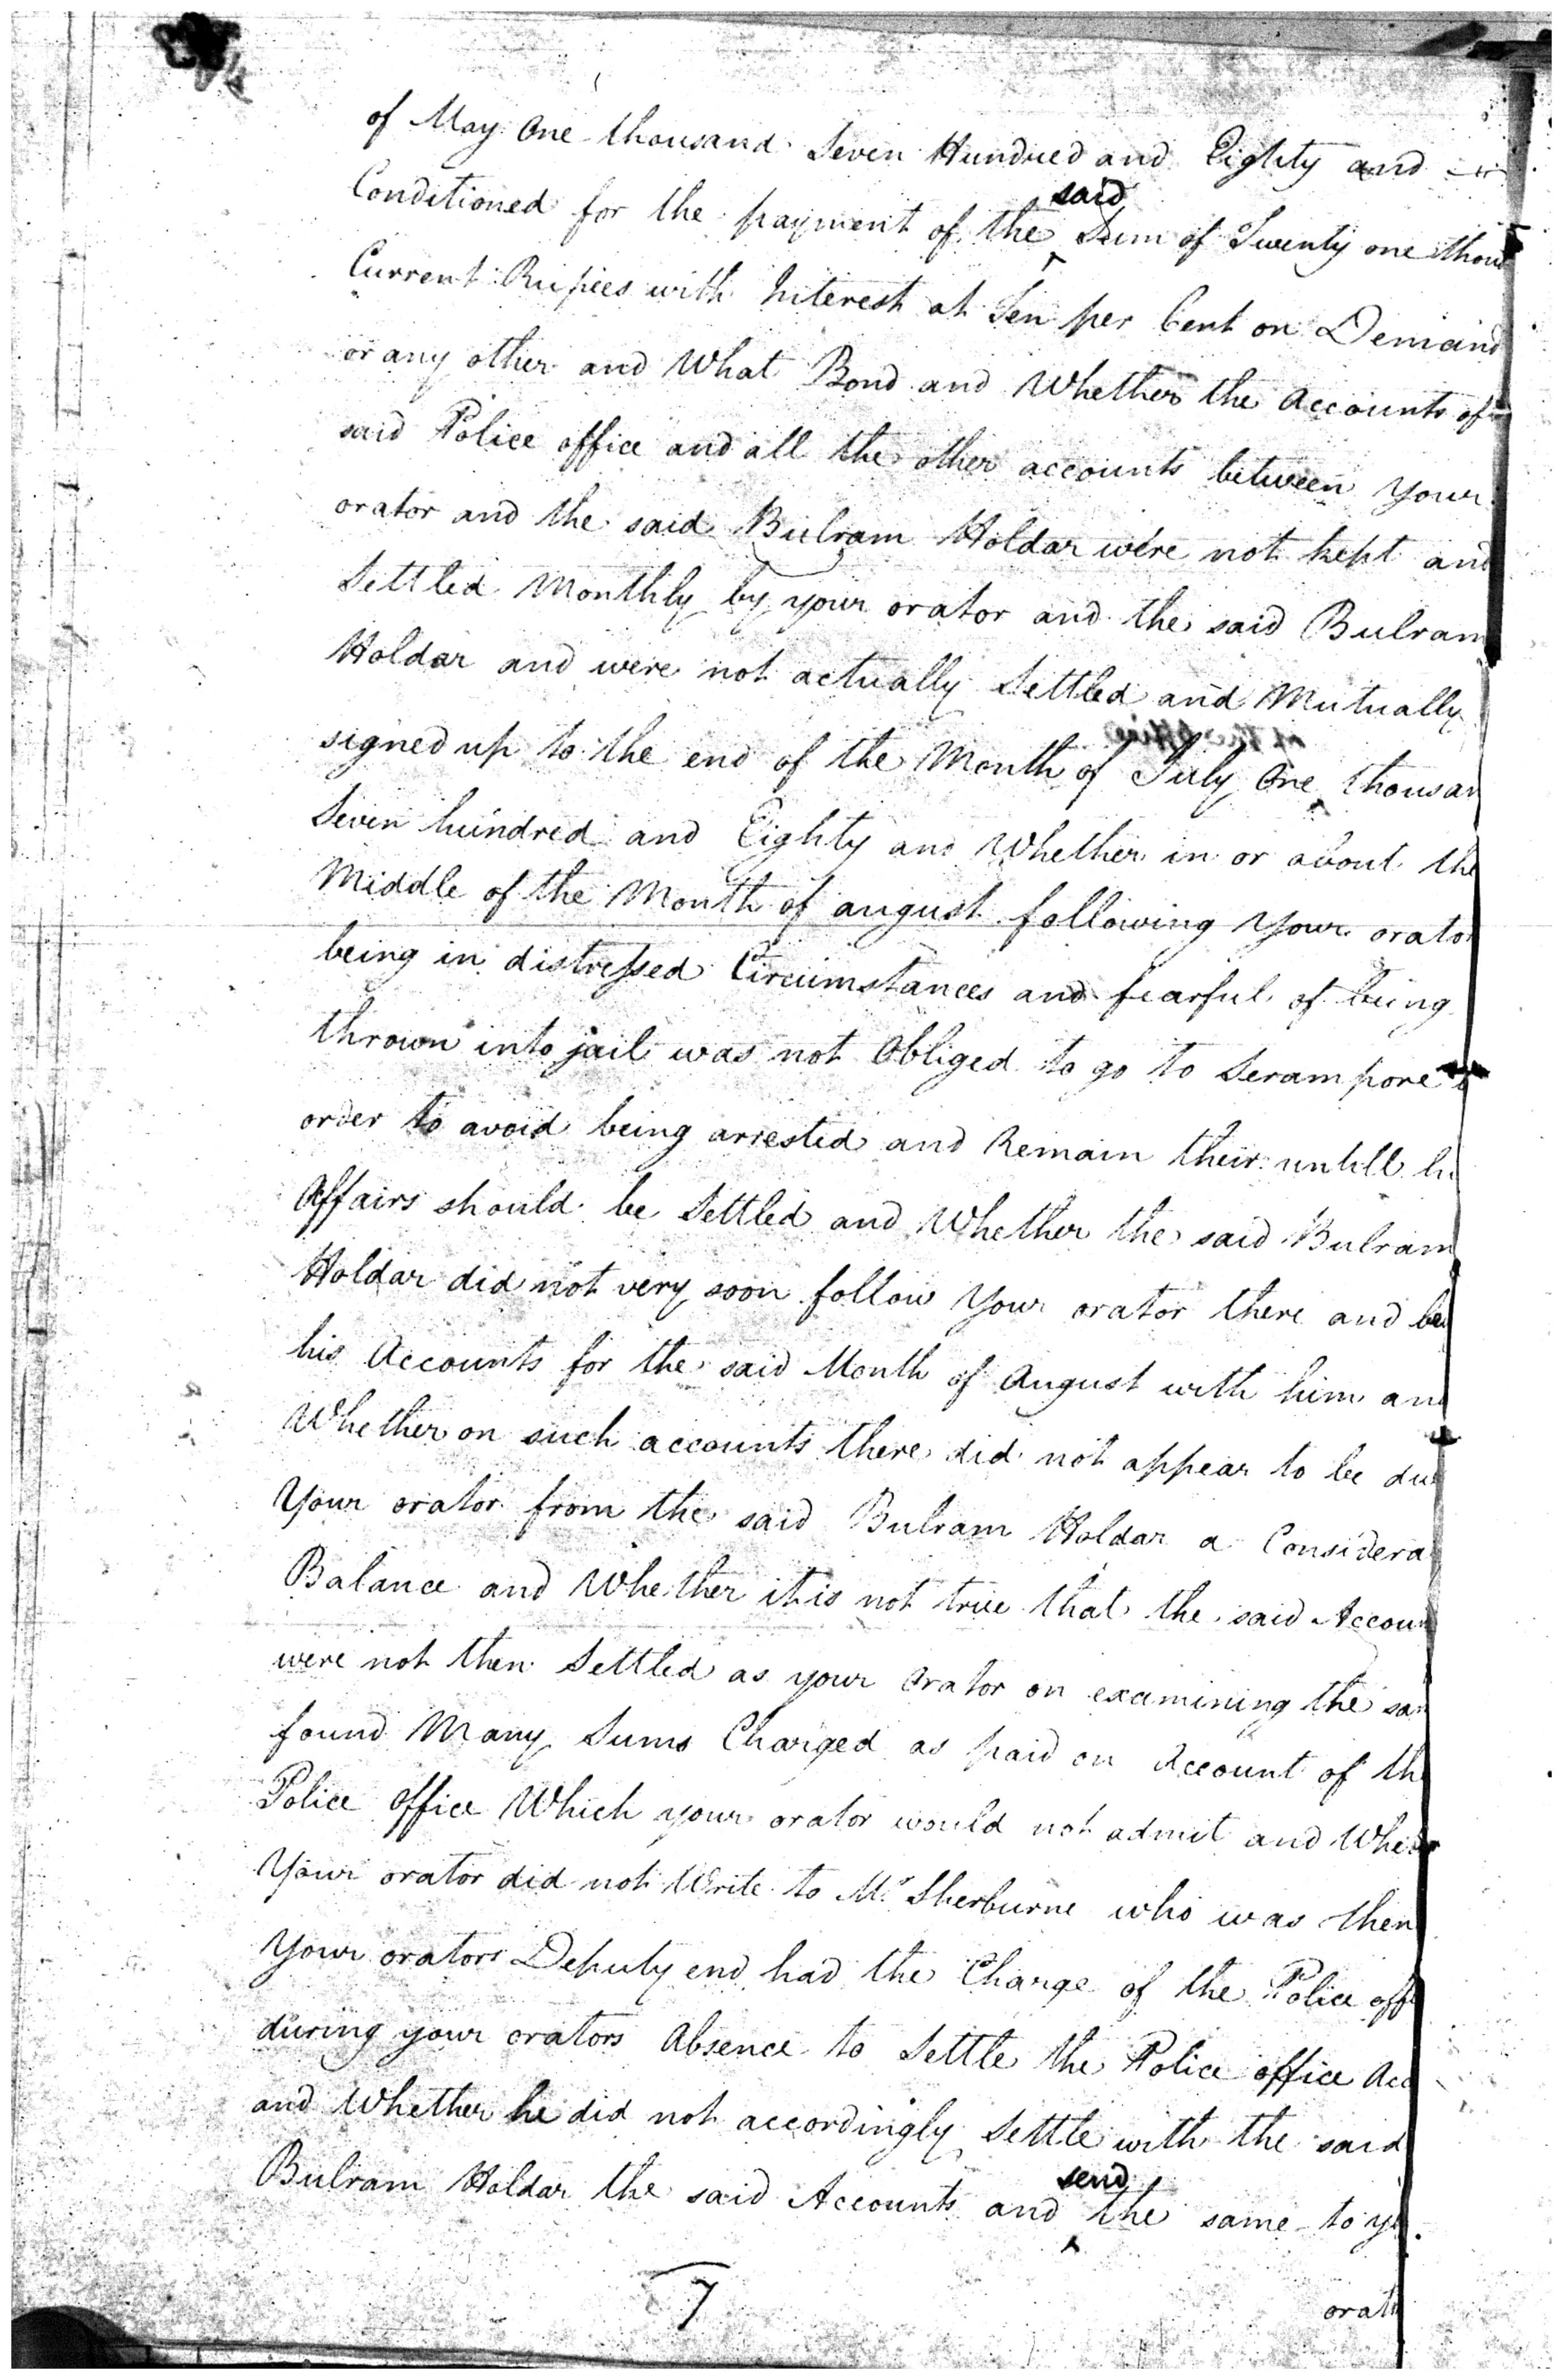 of May One thousand Seven Hundred and Eighty and
Conditioned for the payment of the said Sum of Twenty one thous
Current Rupees with Interest at Ten per Cent on Demand
or any other and What Bond and Whether the Accounts of
said Police office and all the other accounts between Your
orator and the said Bulram Holdar were not kept and
Settled Monthly by your orator and the said Bulram
Holdar and were not actually Settled and Mutually
signed up to the end of the Month of July One thousan
Seven hundred and Eighty and Whether in or about the
Middle of the Month of august following Your orator
being in distressed Circumstances and fearful of being
thrown into jail was not Obliged to go to Serampore
order to avoid being arrested and Remain their untill hi
Affairs should be Settled and Whether the said Bulram
Holdar did not very soon follow Your orator there and
his Accounts for the said Month of August with him and
Whether on such accounts there did not appear to be due
Your orator from the said Bulram Holdar a Considera
Balance and Whether it is not true that the said Accoun
were not then Settled as your Orator on examining the sam
found Many Sums Charged as paid on Account of the
Police Office Which your orator would not admit and Whe
Your orator did not Write to Mr Sherburne who was then
Your orators Deputy end had the Charge of the Police off
during your orators Absence to Settle the Police office Acc
and Whether he did not accordingly Settle with the said
Bulram Holdar the said Accounts and send the same to y
7
orat